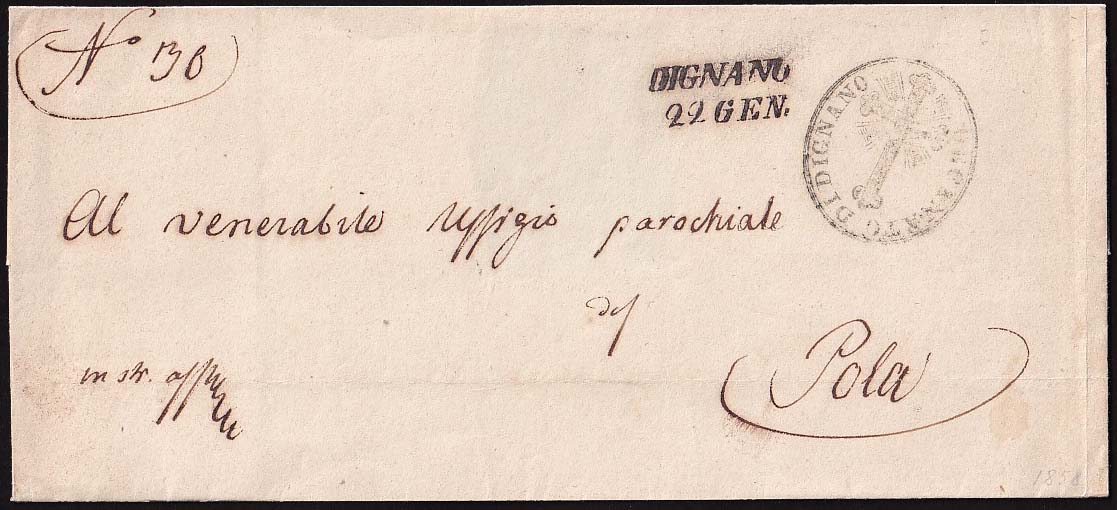 No 30
DIGNANO
22 GEN.
DECANATO DI DIGNANO
Al venerabile Uffizio parochiale
di
Pola
in str. uff